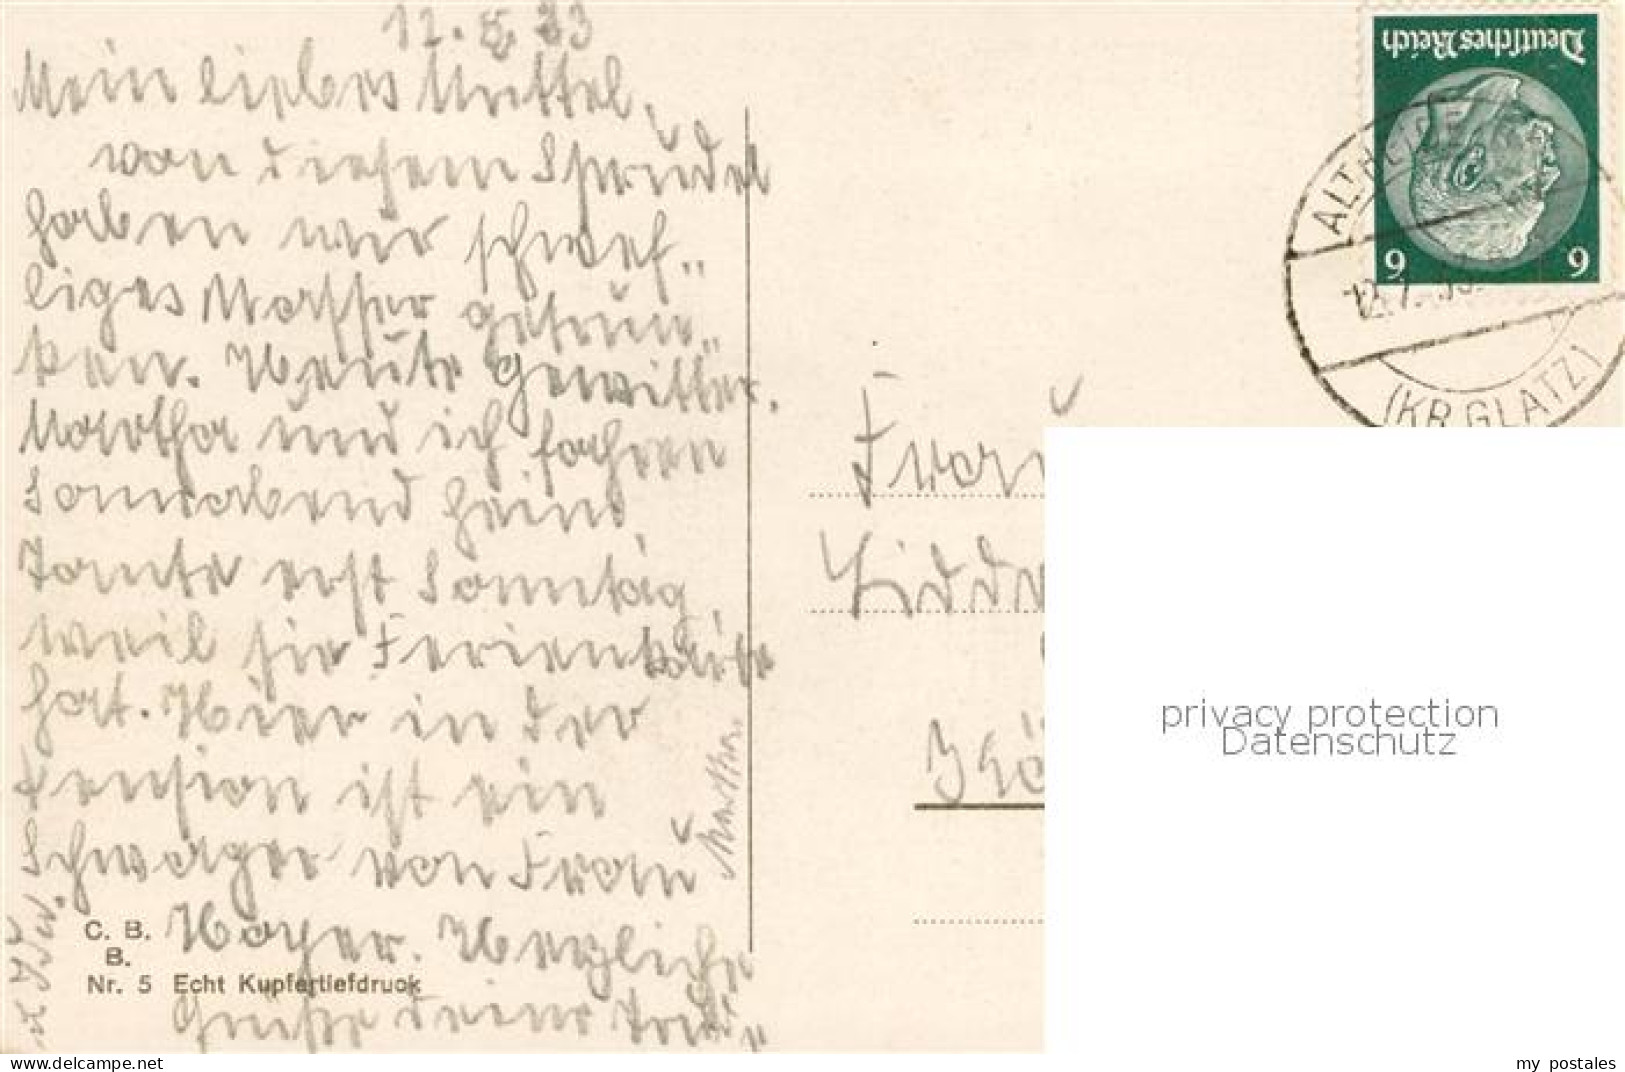 12. 33
Mein liebes Muttel,
von diesem Sprudel
haben wir schwef„
liges Wasser getrun„
ken. Heute Gewitter.
Martha und ich fahren
Sonnabend heim
Tante erst Sonntag,
weil sie Ferienkarte
hat. Hier in der
Pension ist ein
Schwager von Frau
Hoyer. Herzliche
Grüße Deine
Martha.
C. B.
B.
Nr. 5 Echt Kupfertiefdruck
Deutsches Reich
6 6
ALTHEIDE
(KR. GLATZ)
Frau
privacy protection
Datenschutz
https://www.delcampe.net
my postales